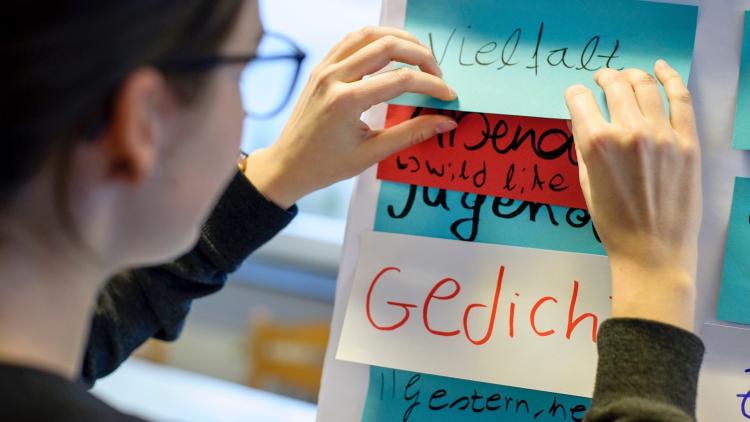 Vielfalt
Abend
wild life
Jugend
Gedich
"Gestern, he